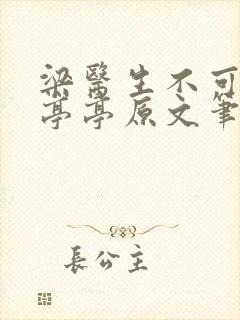 梁醫生不可
亭亭原文筆
長公主